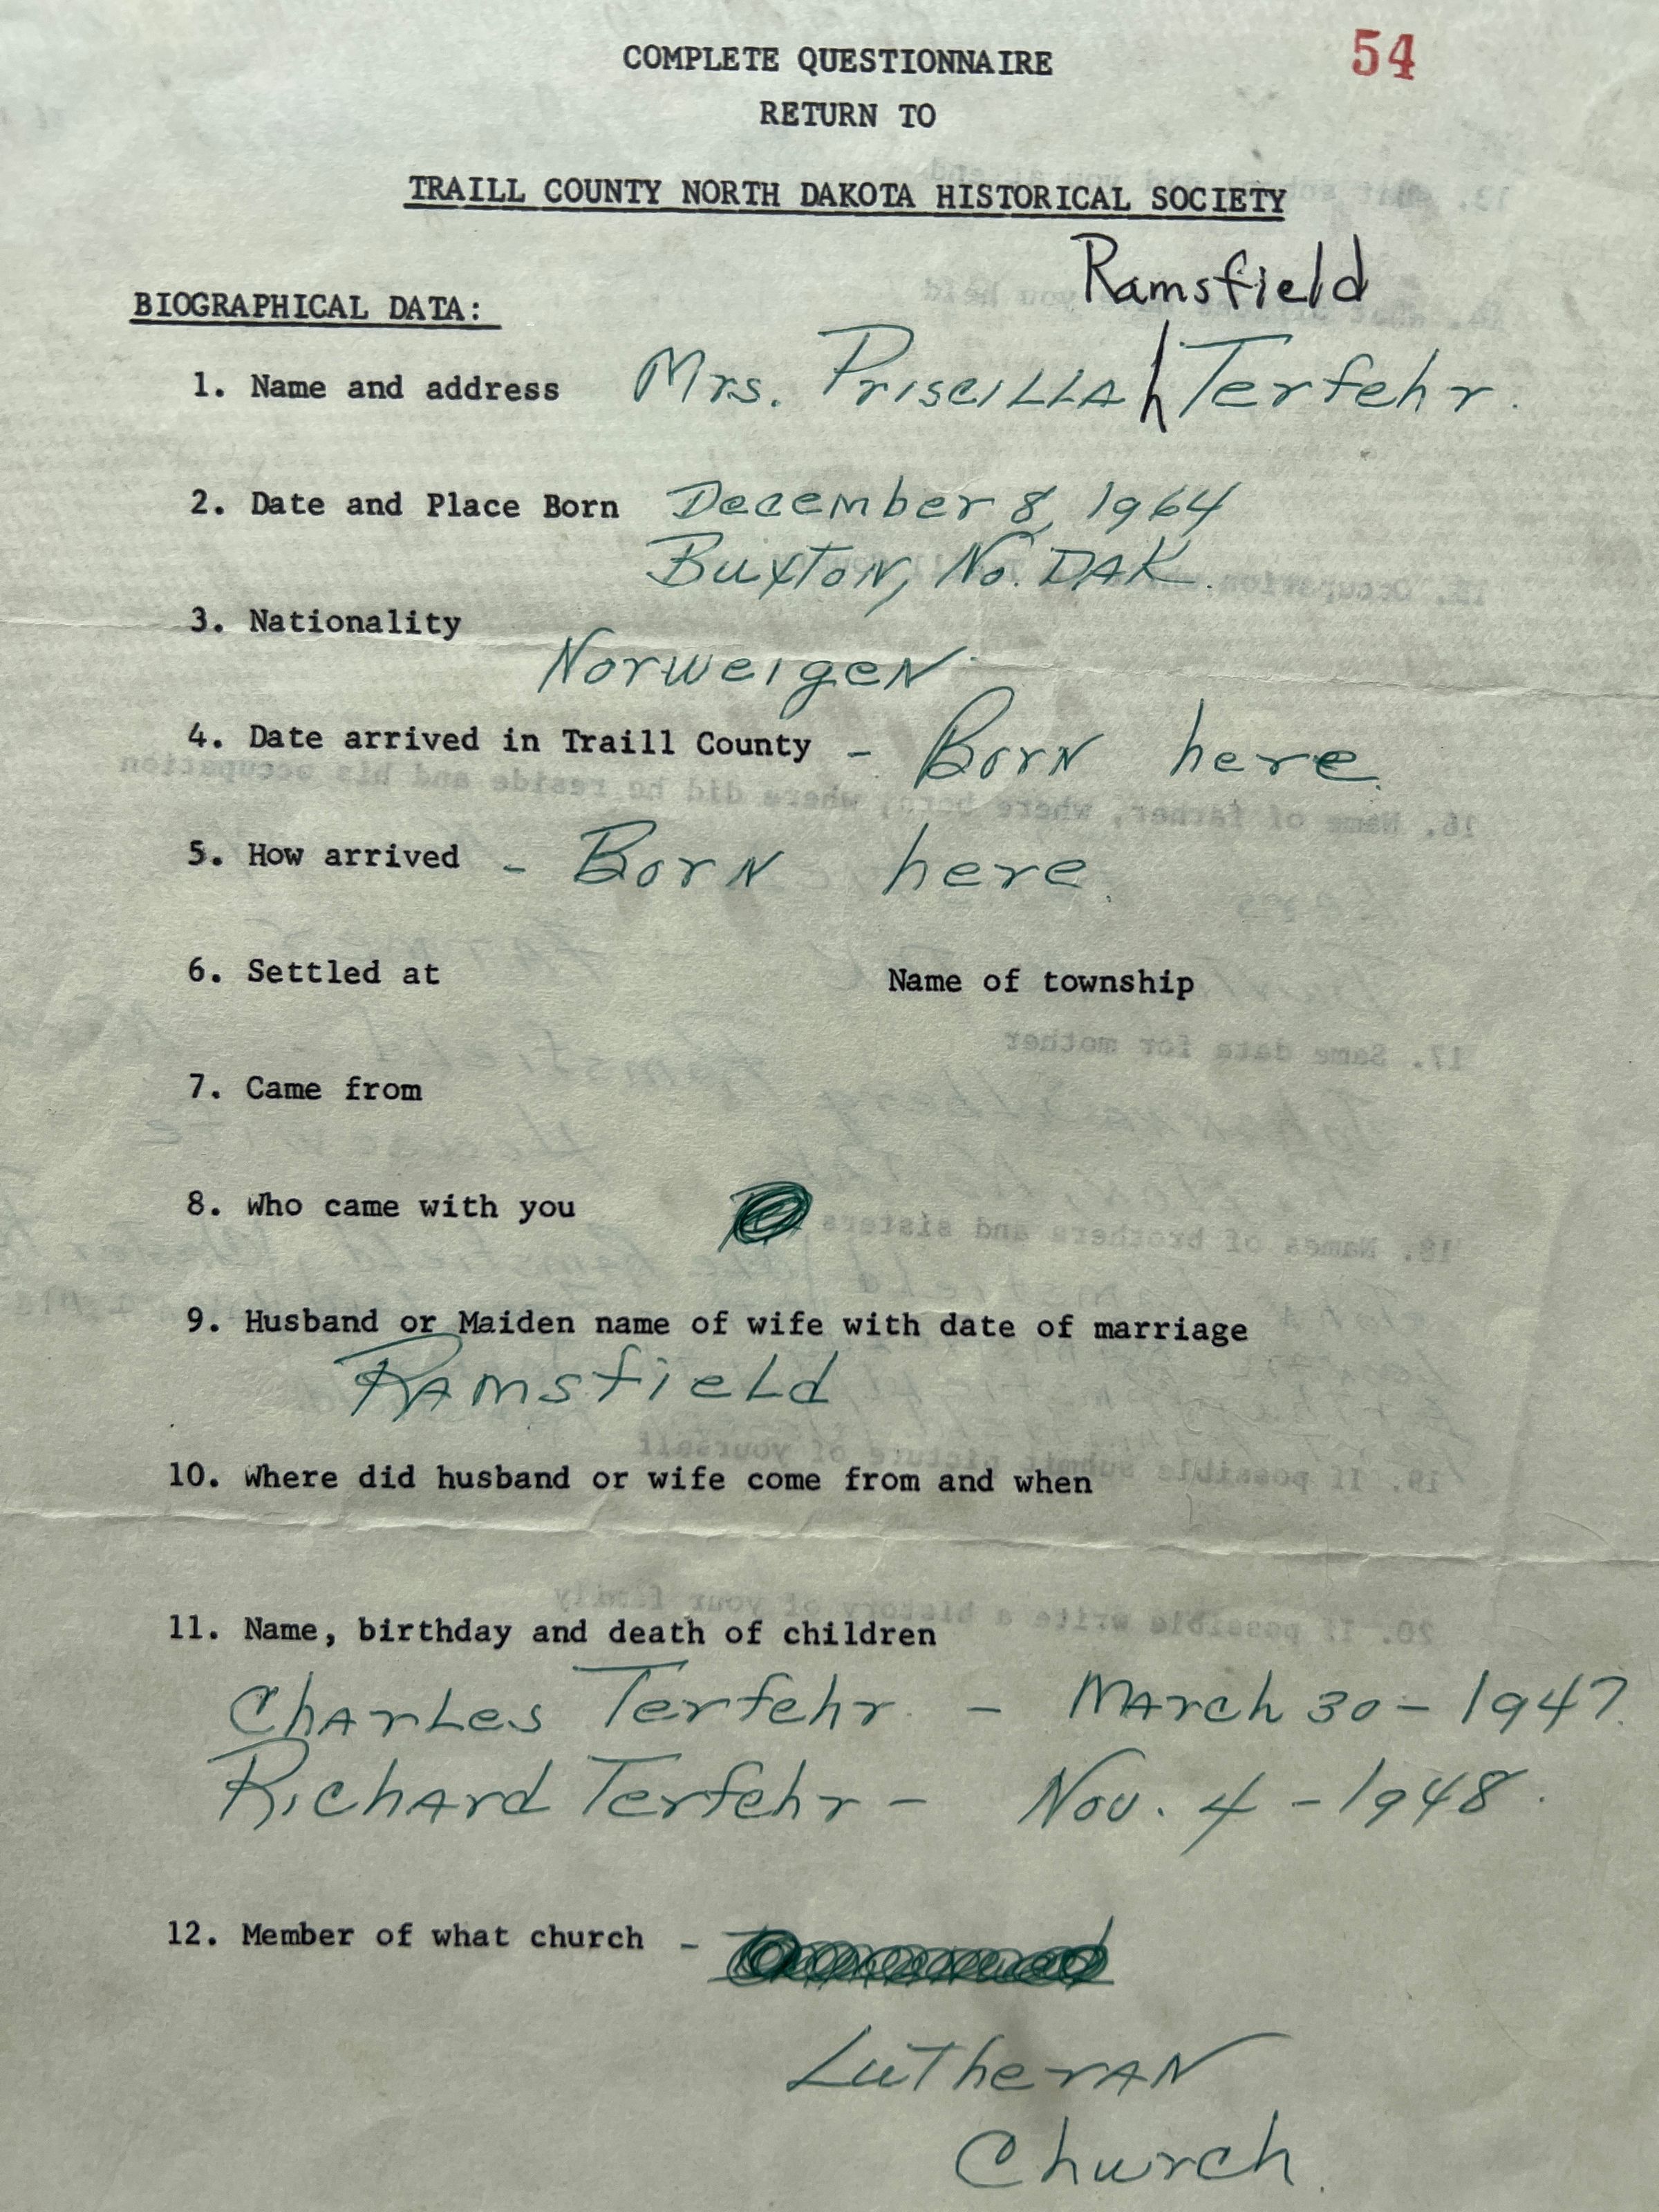 COMPLETE QUESTIONNAIRE
54
RETURN TO
TRAILL COUNTY NORTH DAKOTA HISTORICAL SOCIETY
Ramsfield
BIOGRAPHICAL DATA:
1. Name and address Mrs. Priscilla Terfehr.
2. Date and Place Born December 8, 1964
Buxton, No. Dak.
3. Nationality
Norweigen
4. Date arrived in Traill County - Born here.
5. How arrived - Born here.
6. Settled at Name of township
7. Came from
8. Who came with you
9. Husband or Maiden name of wife with date of marriage
Ramsfield
10. Where did husband or wife come from and when
11. Name, birthday and death of children
Charles Terfehr - March 30 - 1947.
Richard Terfehr - Nov. 4 - 1948.
12. Member of what church -
Lutheran
Church.